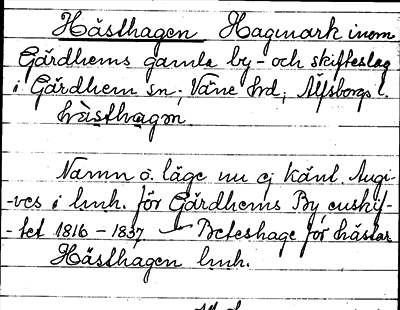 Hästhagen Hagmark inom
Gärdhems gamla by- och skifteslag
i Gärdhem sn; Väne hrd; Älfsborgs l.
hὰsthagɘn
Namn o. läge nu ej känt. Angi-
-ves i lmh. för Gärdhems By enskif-
-tet 1816-1837. Beteshage för hästar
Hästhagen lmh.